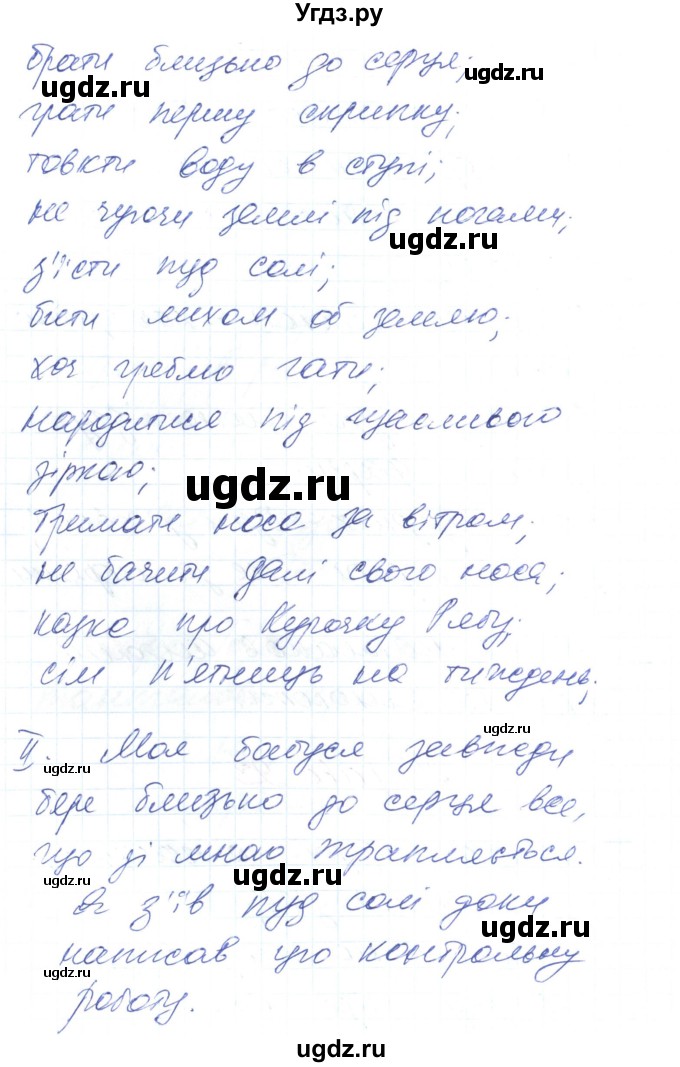 Угдз.ру
брати близько до серця;
ugdz.ru
ugdz.ru
грати першу скрипку;
товкти воду в ступі;
не чуючи землі під ногами;
ugdz.ru
з'їсти пуд солі;
бити лихом об землю;
хоч греблю гати;
народитися під щасливою
зіркою;
ugdz.ru
тримати носа за вітром;
не бачити далі свого носа;
казка про Курочку Рябу;
сім п'ятниць на тиждень;
ugdz.ru
II. Моя бабуся завжди
ugdz.ru
бере близько до серця все,
що зі мною трапляється.
ugdz.ru
ugdz.ru
Я з'їв пуд солі доки
написав цю контрольну
ugdz.ru
роботу.
ugdz.ru
ugdz.ru